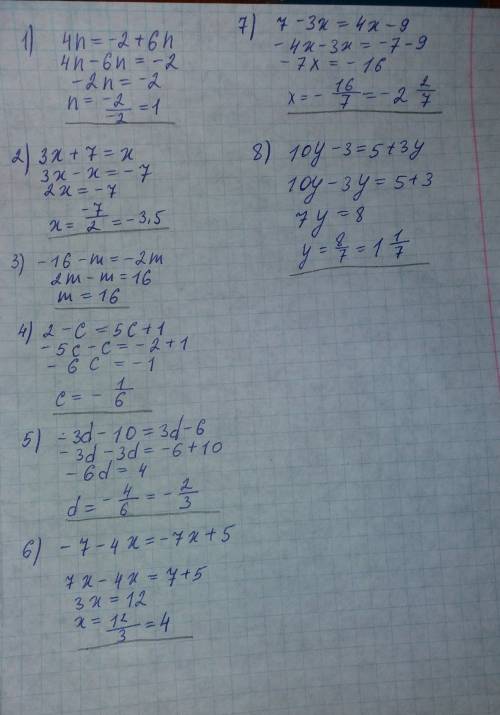 1) 4n = -2 + 6n
4n - 6n = -2
-2n = -2
n = -2/-2 = 1
2) 3x + 7 = x
3x - x = -7
2x = -7
x = -7/2 = -3,5
3) -16 - m = -2m
2m - m = 16
m = 16
4) 2 - c = 5c + 1
-5c - c = -2 + 1
-6c = -1
c = - 1/6
5) -3d - 10 = 3d - 6
-3d - 3d = -6 + 10
-6d = 4
d = - 4/6 = - 2/3
6) -7 - 4x = -7x + 5
7x - 4x = 7 + 5
3x = 12
x = 12/3 = 4
7) 7 - 3x = 4x - 9
-4x - 3x = -7 - 9
-7x = -16
x = - 16/7 = -2 2/7
8) 10y - 3 = 5 + 3y
10y - 3y = 5 + 3
7y = 8
y = 8/7 = 1 1/7